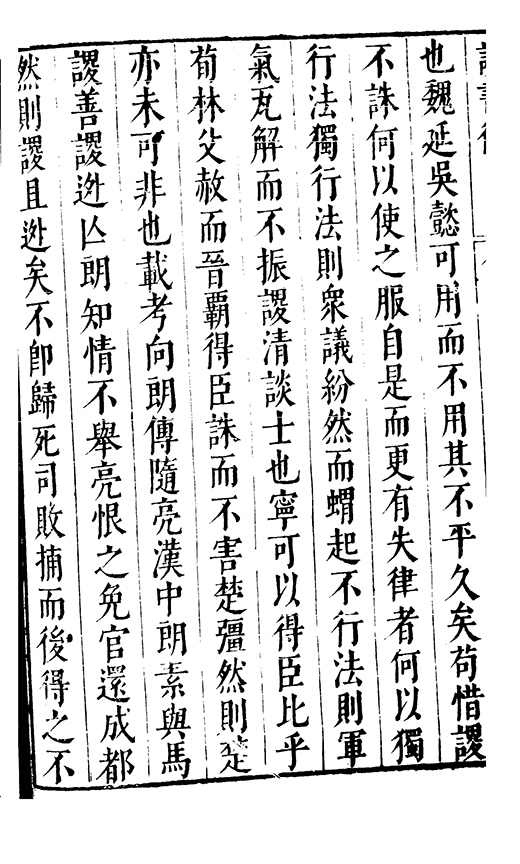 也魏延吳懿可用而不用其不平久矣苟惜謖
不誅何以使之服自是而更有失律者何以獨
行法獨行法則衆議紛然而蝟起不行法則軍
氣瓦解而不振謖清談士也寧可以得臣比乎
荀林父赦而晉覇得臣誅而不害楚彊然則楚
亦未可非也載考向朗傳隨亮漢中朗素與馬
謖善謖迯亾朗知情不舉亮恨之免官還成都
然則謖且迯矣不卽歸死司敗捕而後得之不